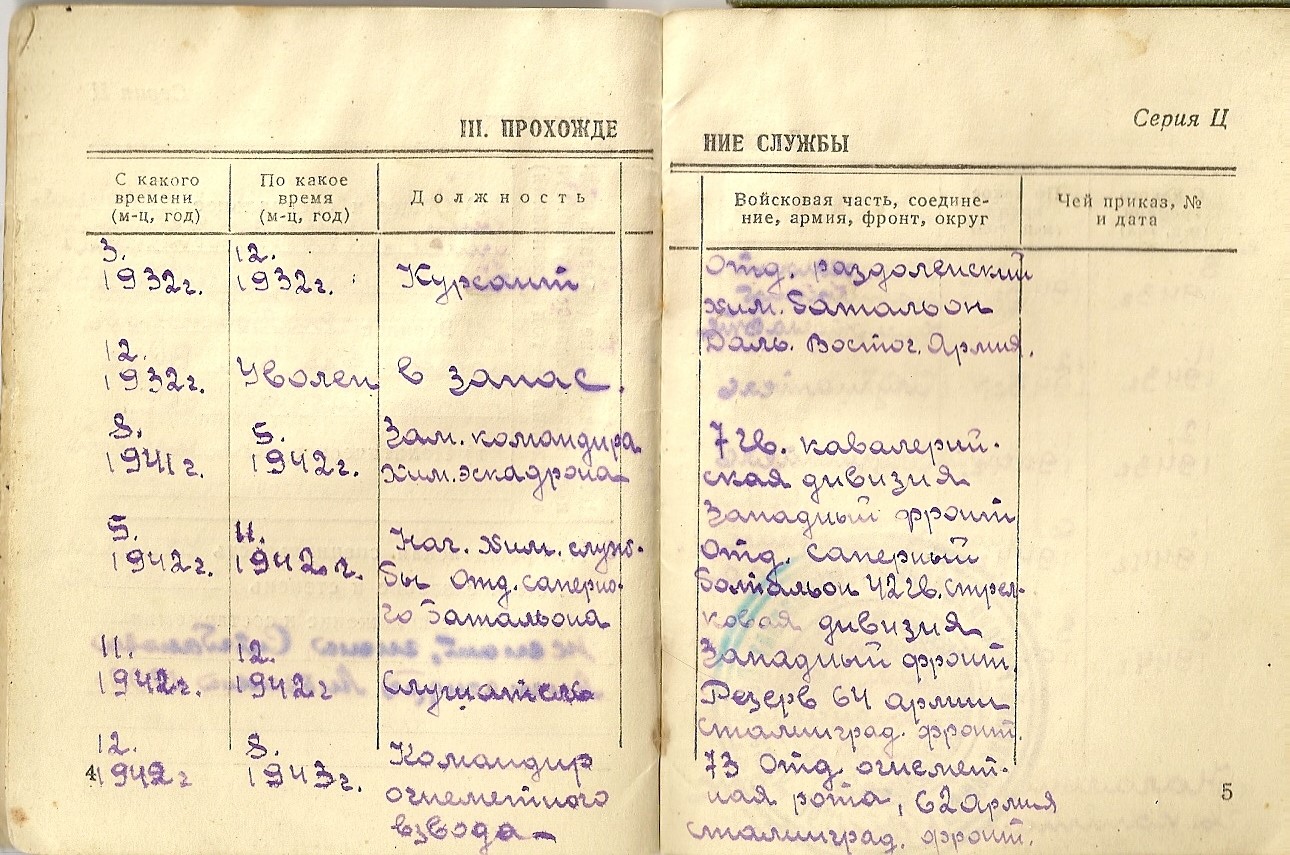 III. ПРОХОЖДЕ
С какого времени (м-ц, год)
По какое время (м-ц, год)
Должность
3. 1932г.
12. 1932г.
Курсант
12. 1932г.
Уволен в запас.
8. 1941г.
5. 1942г.
Зам. командира
хим. эскадрона
5. 1942г.
11. 1942г.
Нач. хим. служ-
бы Отд. саперно-
го батальона
11. 1942г.
12. 1942г
Слушатель
12. 1942г
8. 1943г.
Командир
огнеметного
взвода
4
Серия Ц
НИЕ СЛУЖБЫ
Войсковая часть, соедине-
ние, армия, фронт, округ
Чей приказ, №
и дата
Отд. раздоленский
хим. батальон
Даль. Восточ. Армия.
7 гв. кавалерий-
ская дивизия
Западный фронт
Отд. саперный
батальон 42 гв. стрел-
ковая дивизия
Западный фронт.
Резерв 64 армии
сталинград. фронт.
73 отд. огнемет-
ная рота, 62 армия
сталинград. фронт.
5